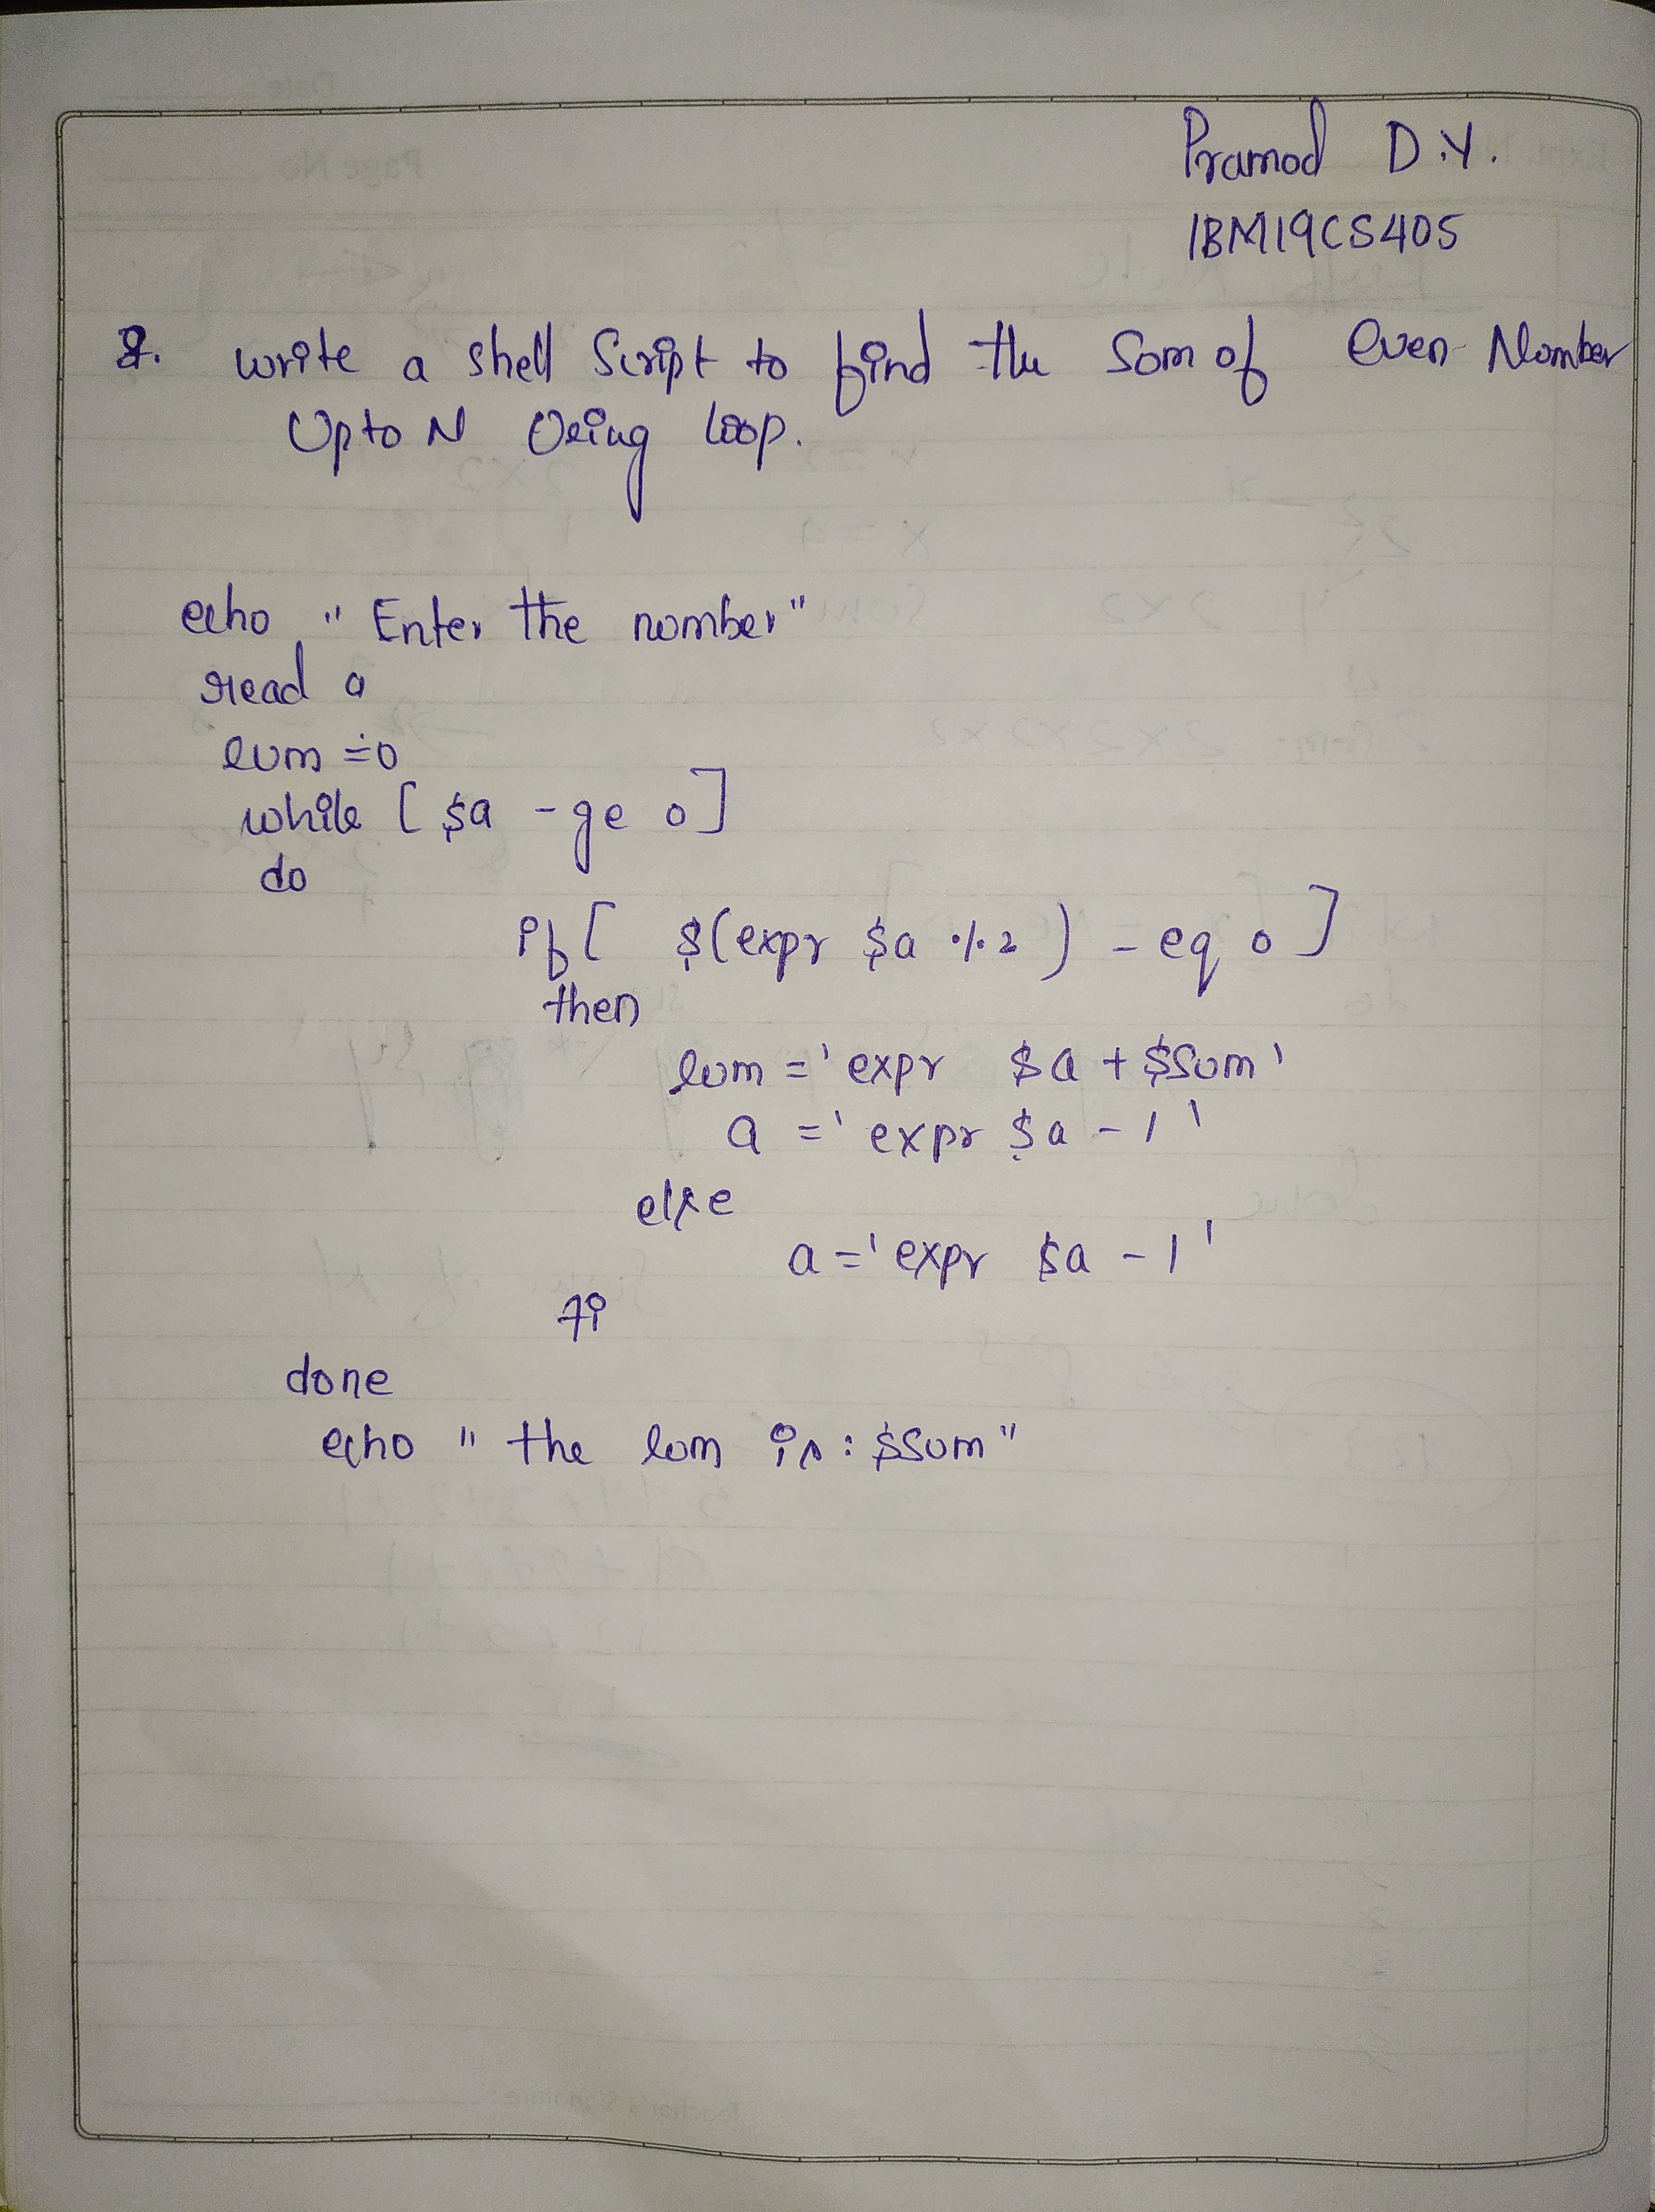 Pramod D.Y.
1BM19CS405
8. write a shell Script to find the Sum of Even Number
Upto N Using loop.
echo "Enter the number"
read a
sum=0
while [ $a -ge 0 ]
do
if [ $(expr $a % 2 ) -eq 0 ]
then
sum='expr $a + $sum'
a='expr $a - 1'
else
a='expr $a - 1'
fi
done
echo "the sum is: $sum"